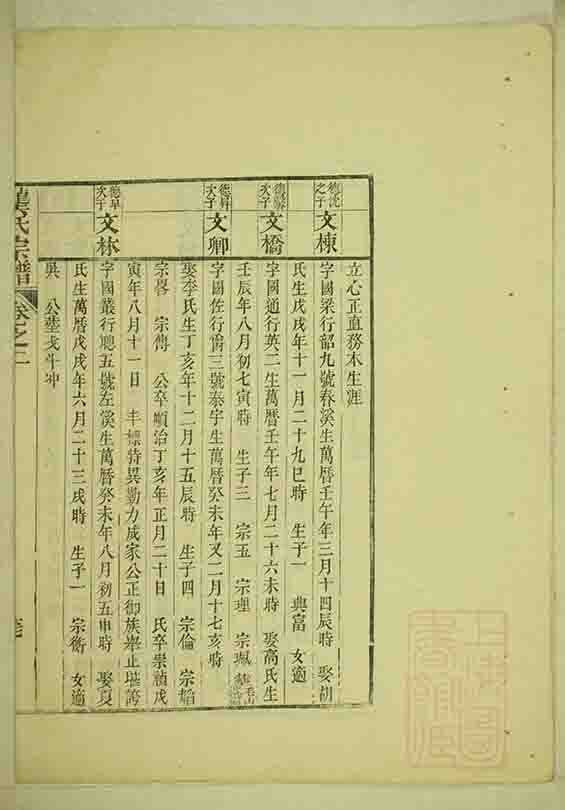 立心正直務本生涯
德沈之子 文棟 字國梁行韶九號春溪生萬曆壬午年三月十四辰時 娶胡
氏生戊戌年十一月二十九巳時 生子一 典富 女適
次子 文橋 字國通行英二生萬曆壬午年七月二十六未時 娶高氏生
壬辰年八月初七寅時 生子三 宗玉 宗理 宗珮
德昇次子 文卿 字國佐行爵三號泰宇生萬曆癸未年又二月十七亥時
娶李氏生丁亥年十二月十五辰時 生子四 宗倫 宗韜
宗畧 宗傳 公卒順治丁亥年正月二十日 氏卒崇禎戊
寅年八月十一日 丰標特異勤力成家公正御族舉止堪誇
德早次子 文林 字國叢行聰五號左溪生萬曆癸未年八月初五申時 娶袁
氏生萬曆戊戌年六月二十三戌時 生子一 宗衡 女適
吳 公塟戈斗冲
氏宗譜 卷之二